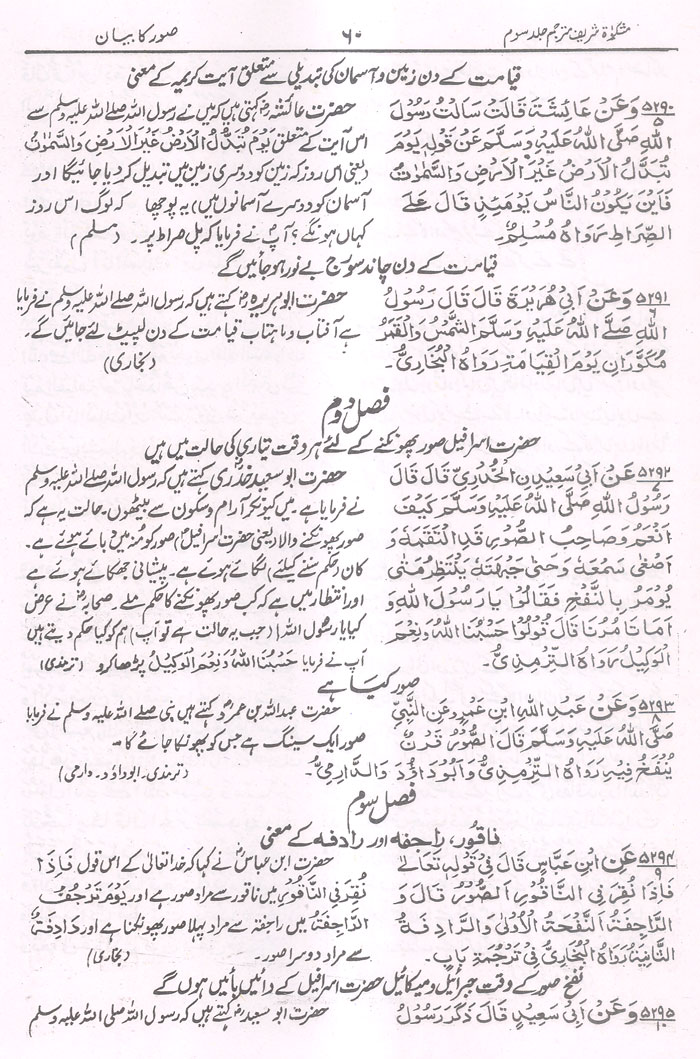 مشکوٰۃ شریف مترجم جلد سوم ۶۰ صور کا بیان
قیامت کے دن زمین و آسمان کی تبدیلی سے متعلق آیت کریمہ کے معنی
۵۲۹۰ ۵ وَعَنْ عَائِشَةَ قَالَتْ سَاَلْتُ رَسُوْلَ
اللهِ صَلَّى اللهُ عَلَيْهِ وَسَلَّمَ عَنْ قَوْلِهٖ يَوْمَ
تُبَدَّلُ الْاَرْضُ غَيْرَ الْاَرْضِ وَالسَّمٰوٰتُ
فَاَيْنَ يَكُوْنُ النَّاسُ يَوْمَئِذٍ قَالَ عَلَى
الصِّرَاطِ رَوَاهُ مُسْلِمٌ۔
حضرت عائشہؓ کہتی ہیں کہ میں نے رسول اللہ صلے اللہ علیہ وسلم سے
اس آیت کے متعلق يَوْمَ تُبَدَّلُ الْاَرْضُ غَيْرَ الْاَرْضِ وَالسَّمٰوٰتُ
(یعنی اس روز کہ زمین کو دوسری زمین میں تبدیل کر دیا جائیگا اور
آسمان کو دوسرے آسمانوں میں) یہ پوچھا کہ لوگ اس روز
کہاں ہونگے؟ آپؐ نے فرمایا کہ پل صراط پر۔ (مسلم)
قیامت کے دن چاند سورج بے نور ہو جائیں گے
۵۲۹۱ ۶ وَعَنْ اَبِيْ هُرَيْرَةَ قَالَ قَالَ رَسُوْلُ
اللهِ صَلَّى اللهُ عَلَيْهِ وَسَلَّمَ الشَّمْسُ وَالْقَمَرُ
مُكَوَّرَانِ يَوْمَ الْقِيَامَةِ رَوَاهُ الْبُخَارِيُّ۔
حضرت ابوہریرہؓ کہتے ہیں کہ رسول اللہ صلے اللہ علیہ وسلم نے فرمایا
ہے آفتاب و ماہتاب قیامت کے دن لپیٹ لئے جائیں گے۔
(بخاری)
فصل دوم
حضرت اسرافیل صور پھونکنے کے لئے ہر وقت تیاری کی حالت میں ہیں
۵۲۹۲ ۷ وَعَنْ اَبِيْ سَعِيْدِنِ الْخُدْرِيِّ قَالَ قَالَ
رَسُوْلُ اللهِ صَلَّى اللهُ عَلَيْهِ وَسَلَّمَ كَيْفَ
اَنْعَمُ وَصَاحِبُ الصُّوْرِ قَدِ الْتَقَمَهُ وَ
اَصْغٰى سَمْعَهُ وَحَنٰى جَبْهَتَهُ يَنْتَظِرُ مَتٰى
يُؤْمَرُ بِالنَّفْخِ فَقَالُوْا يَا رَسُوْلَ اللهِ وَ
مَا تَاْمُرُنَا قَالَ قُوْلُوْا حَسْبُنَا اللهُ وَنِعْمَ
الْوَكِيْلُ رَوَاهُ التِّرْمِذِيُّ۔
حضرت ابو سعید خدریؓ کہتے ہیں کہ رسول اللہ صلے اللہ علیہ وسلم
نے فرمایا ہے۔ میں کیونکر آرام و سکون سے بیٹھوں۔ حالت یہ ہے کہ
صور پھونکنے والا (یعنی حضرت اسرافیلؑ) صور کو منہ میں لئے ہوئے ہے۔
کان (حکم سننے کیلئے) لگائے ہوئے ہے۔ پیشانی جھکائے ہوئے ہے
اور انتظار میں ہے کہ کب صور پھونکنے کا حکم ملے۔ صحابہؓ نے عرض
کیا یا رسول اللہ! (جب یہ حالت ہے تو آپ) ہم کو کیا حکم دیتے ہیں
آپ نے فرمایا حَسْبُنَا اللهُ وَنِعْمَ الْوَكِيْلُ پڑھا کرو (ترمذی)
صور کیا ہے
۵۲۹۳ ۸ وَعَنْ عَبْدِ اللهِ ابْنِ عَمْرٍو عَنِ النَّبِيِّ
صَلَّى اللهُ عَلَيْهِ وَسَلَّمَ قَالَ الصُّوْرُ قَرْنٌ
يُنْفَخُ فِيْهِ رَوَاهُ التِّرْمِذِيُّ وَاَبُوْدَاوٗدَ وَالدَّارِمِيُّ۔
حضرت عبداللہ بن عمروؓ کہتے ہیں نبی صلے اللہ علیہ وسلم نے فرمایا
صور ایک سینگ ہے جس کو پھونکا جائے گا۔
(ترمذی۔ ابوداؤد۔ دارمی)
فصل سوم
ناقور، راجفہ اور رادفہ کے معنی
۵۲۹۴ ۹ عَنِ ابْنِ عَبَّاسٍ قَالَ فِيْ قَوْلِهٖ تَعَالٰى
فَاِذَا نُقِرَ فِي النَّاقُوْرِ اَلصُّوْرُ قَالَ وَ
الرَّاجِفَةُ النَّفْخَةُ الْاُوْلٰى وَالرَّادِفَةُ
الثَّانِيَةُ رَوَاهُ الْبُخَارِيُّ فِيْ تَرْجُمَةِ بَابٍ۔
حضرت ابن عباسؓ نے کہا کہ خدا تعالیٰ کے اس قول فَاِذَا
نُقِرَ فِي النَّاقُوْرِ میں ناقور سے مراد صور ہے اور يَوْمَ تَرْجُفُ
الرَّاجِفَةُ میں راجفۃ سے مراد پہلا صور پھونکنا ہے اور رَادِفَةُ
سے مراد دوسرا صور۔ (بخاری)
نفخ صور کے وقت جبرائیل و میکائیل حضرت اسرافیل کے دائیں بائیں ہوں گے
۵۲۹۵ ۱۰ وَعَنْ اَبِيْ سَعِيْدٍ قَالَ ذَكَرَ رَسُوْلُ
حضرت ابو سعیدؓ کہتے ہیں کہ رسول اللہ صلی اللہ علیہ وسلم